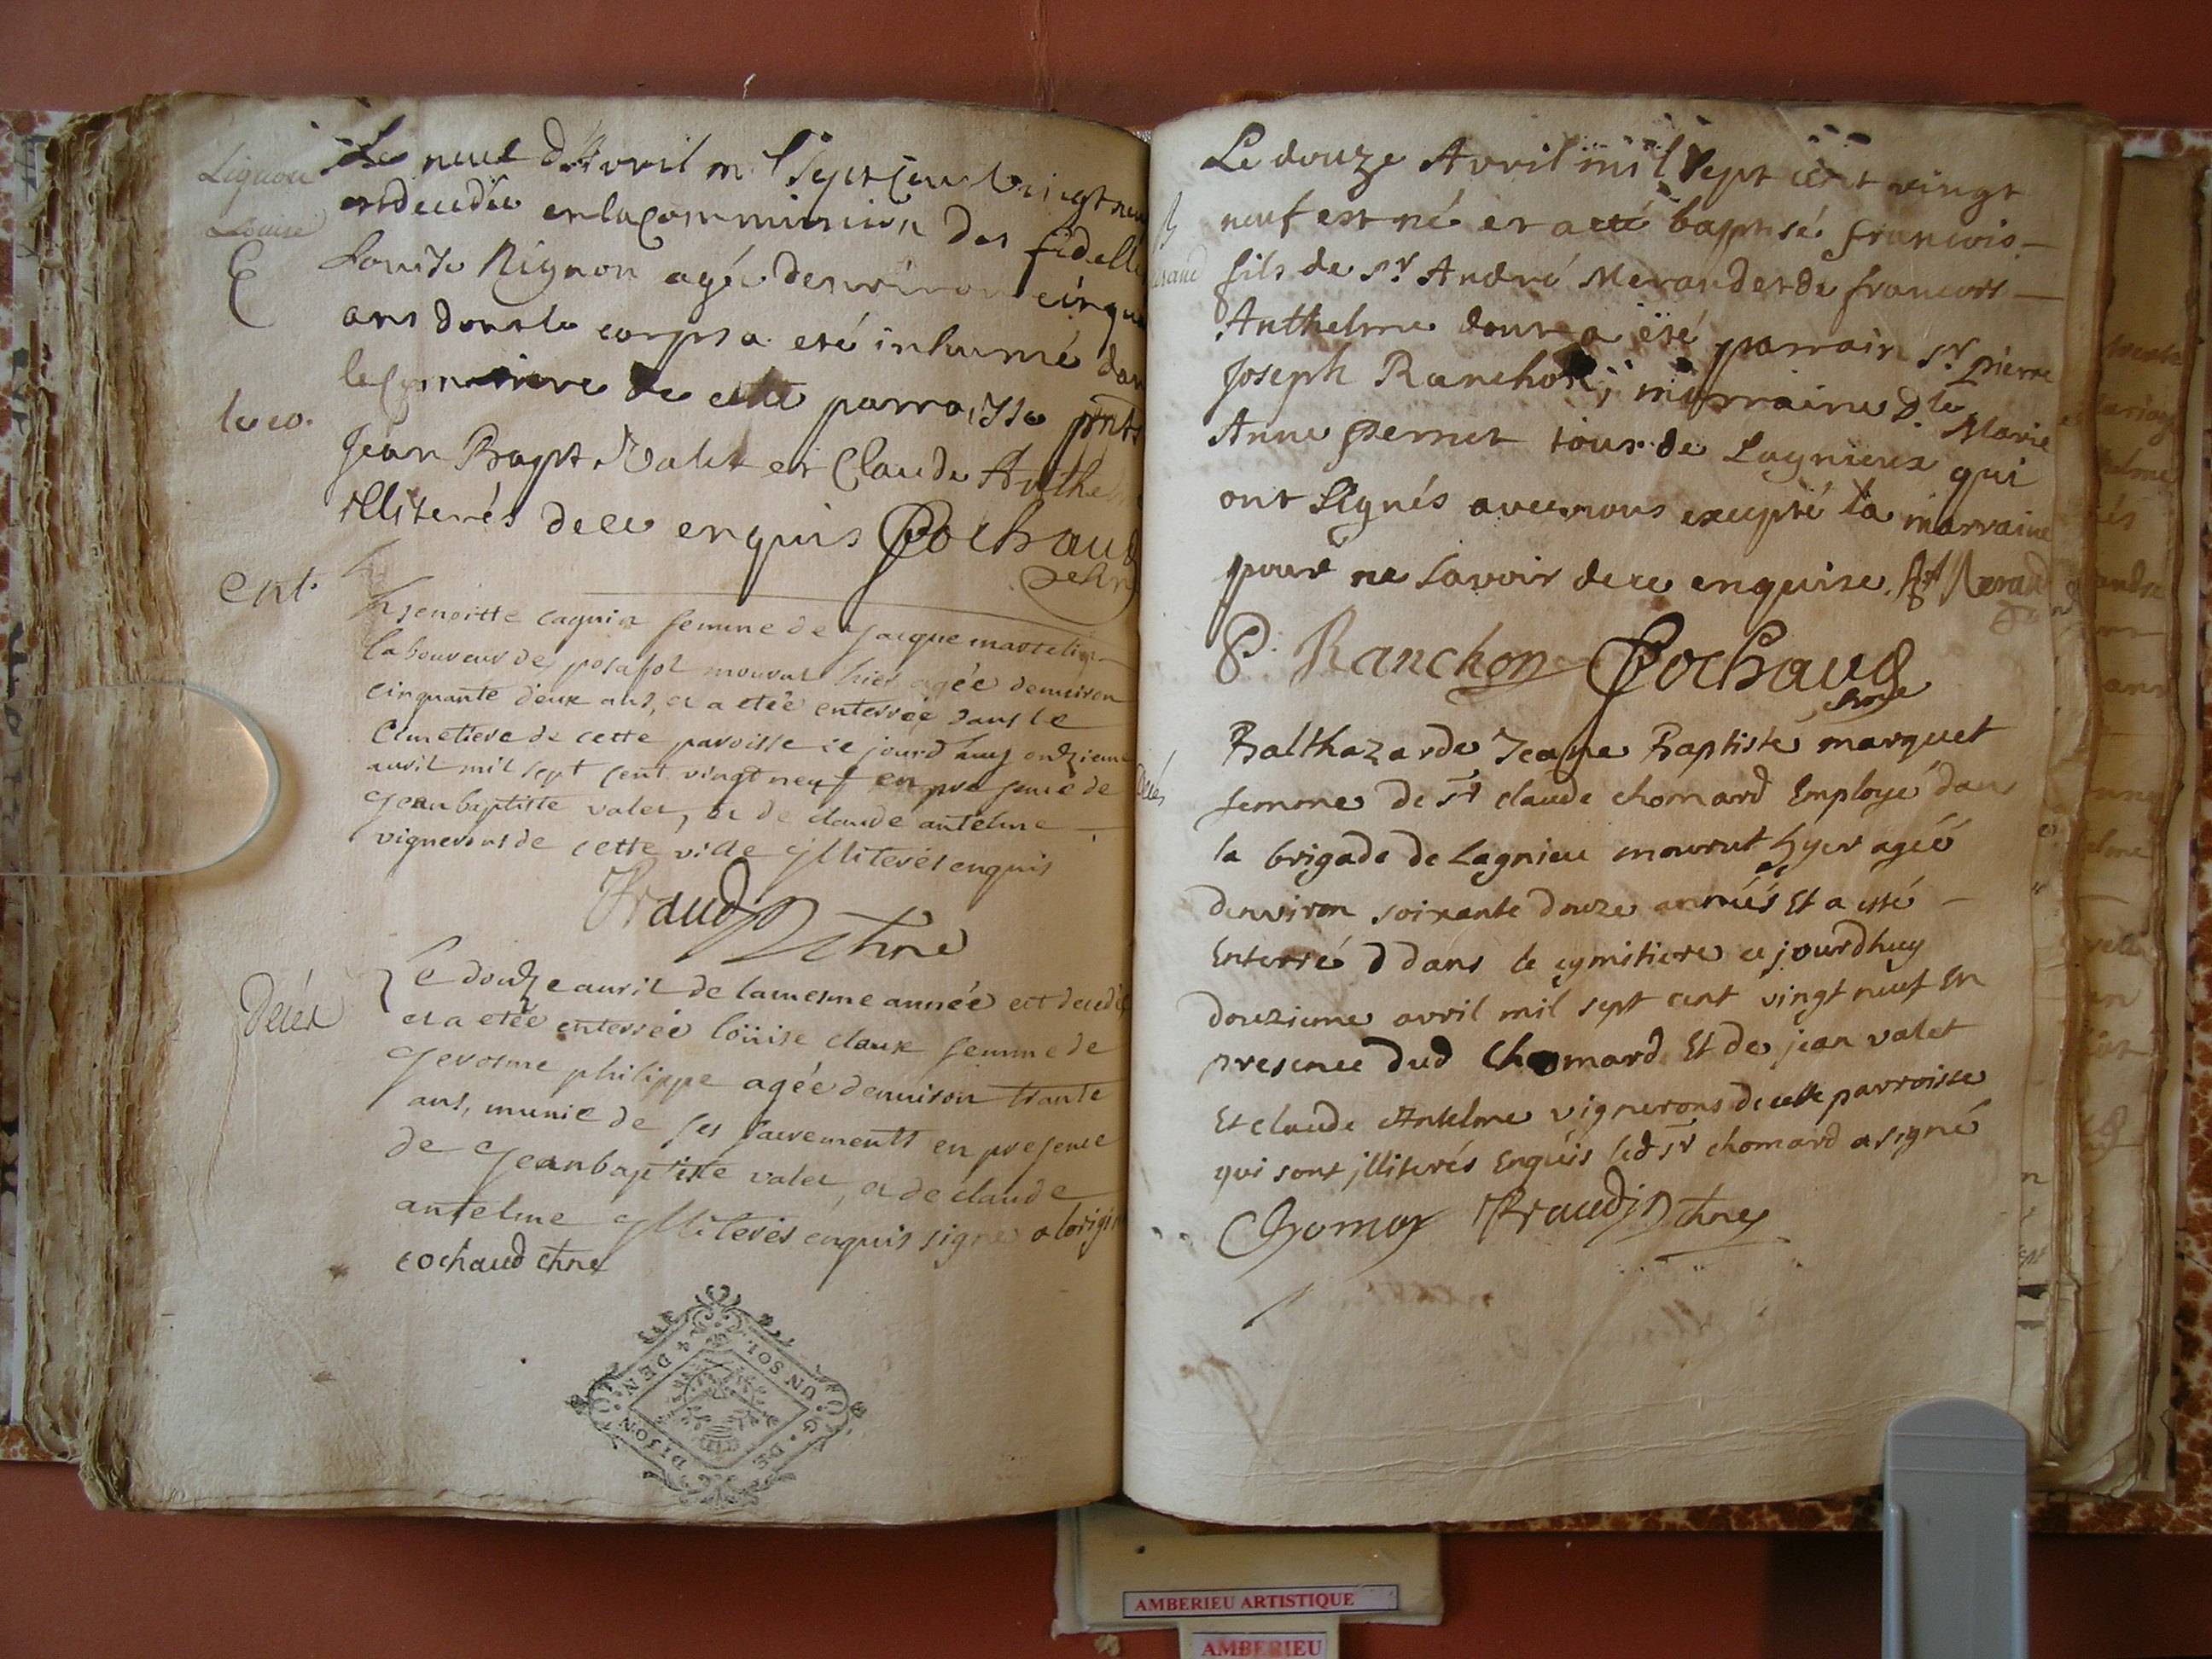 Le neuf d'Avril mil Sept Cent vingt neuf
est decedée en la Communion des fidelle
Louise Rignon agée denviron cinqu
ans dont le corps a eté inhumé dan
le Cymetiere de cette parroisse pnts
Jean Bapt Valet et Claude Anthelm
illiterés de ce enquis Cochaud
Louise
E
Ent.
Benoitte cagnin femme de Jacque marcelin
laboureur de posafol mourut hier agée denuiron
cinquante deux ans, et a etée enterrée dans le
Cimetiere de cette paroisse ce jourd huy onzieme
auril mil sept cent vingt neuf en presence de
Jean baptiste valet, et de claude antelme
vignerons de cette ville illiterés enquis
Fraud
Decés
Le douze auril de la mesme année est decedée
et a etée enterrée loüise claux femme de
Jerosme philippe agée denuiron trante
ans, munie de ses sacrements en presence
de Jean baptiste valet, et de claude
antelme illiterés enquis signé a lorigi
cochaud chne
UN SOL. 4 DEN.
G. DE DIJON
Le douze Avril mil Sept cent vingt
neuf est né et a eté baptisé francois
fils de Sr. André Merand et de francoise
Anthelme dont a eté parrain Sr. Pierre
Joseph Ranchon; marraine Dle. Marie
Anne Pernet tous de Lagnieux qui
ont Signés avec nous excepté la marraine
pour ne Savoir de ce enquise. Merand
P. Ranchon Cochaud
chne
Decés
Balthazarde Jeanne Baptiste marquet
femme de Sr claude chomard Employé dans
la brigade de Lagnieu mourut hyer agéé
denviron soixante douze annéés Et a esté
Enterré d dans le cymitiere ce jourdhuy
douzieme avril mil sept cent vingt neuf En
presence dud Chomard Et de jean valet
Et claude Antelme vignerons de cette parroisse
qui sont jlliterés Enquis led Sr chomard a signé
Chomar Fraud chne
AMBERIEU ARTISTIQUE
AMBERIEU